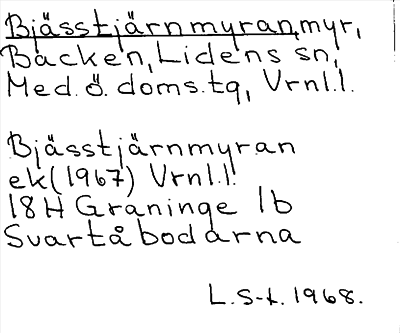 Bjässtjärnmyran, myr,
Backen, Lidens sn,
Med. Ö. doms.tg, Vrnl.l.
Bjässtjärnmyran
ek (1967) Vrnl.l.
18H Graninge 1b
Svartåbodarna
L.S-t. 1968.